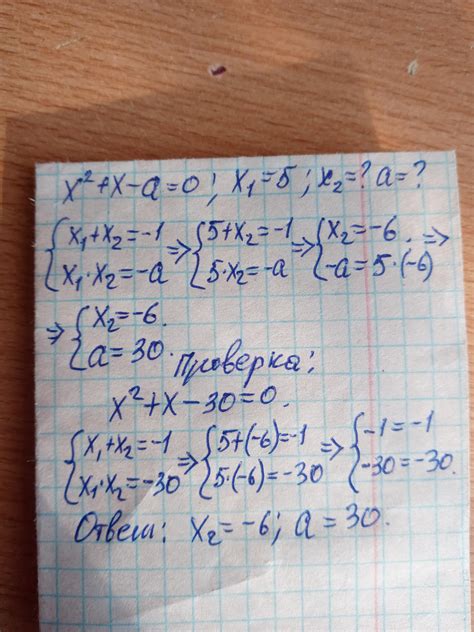 x²+x-a=0; x₁=5; x₂=? a=?
{x₁+x₂=-1 {5+x₂=-1 {x₂=-6.
{x₁·x₂=-a ⇒ {5·x₂=-a ⇒ {-a=5·(-6) ⇒
⇒ {x₂=-6.
{a=30. Проверка:
x²+x-30=0.
{x₁+x₂=-1 {5+(-6)=-1 {-1=-1
{x₁·x₂=-30 ⇒ {5·(-6)=-30 ⇒ {-30=-30.
Ответ: x₂=-6; a=30.